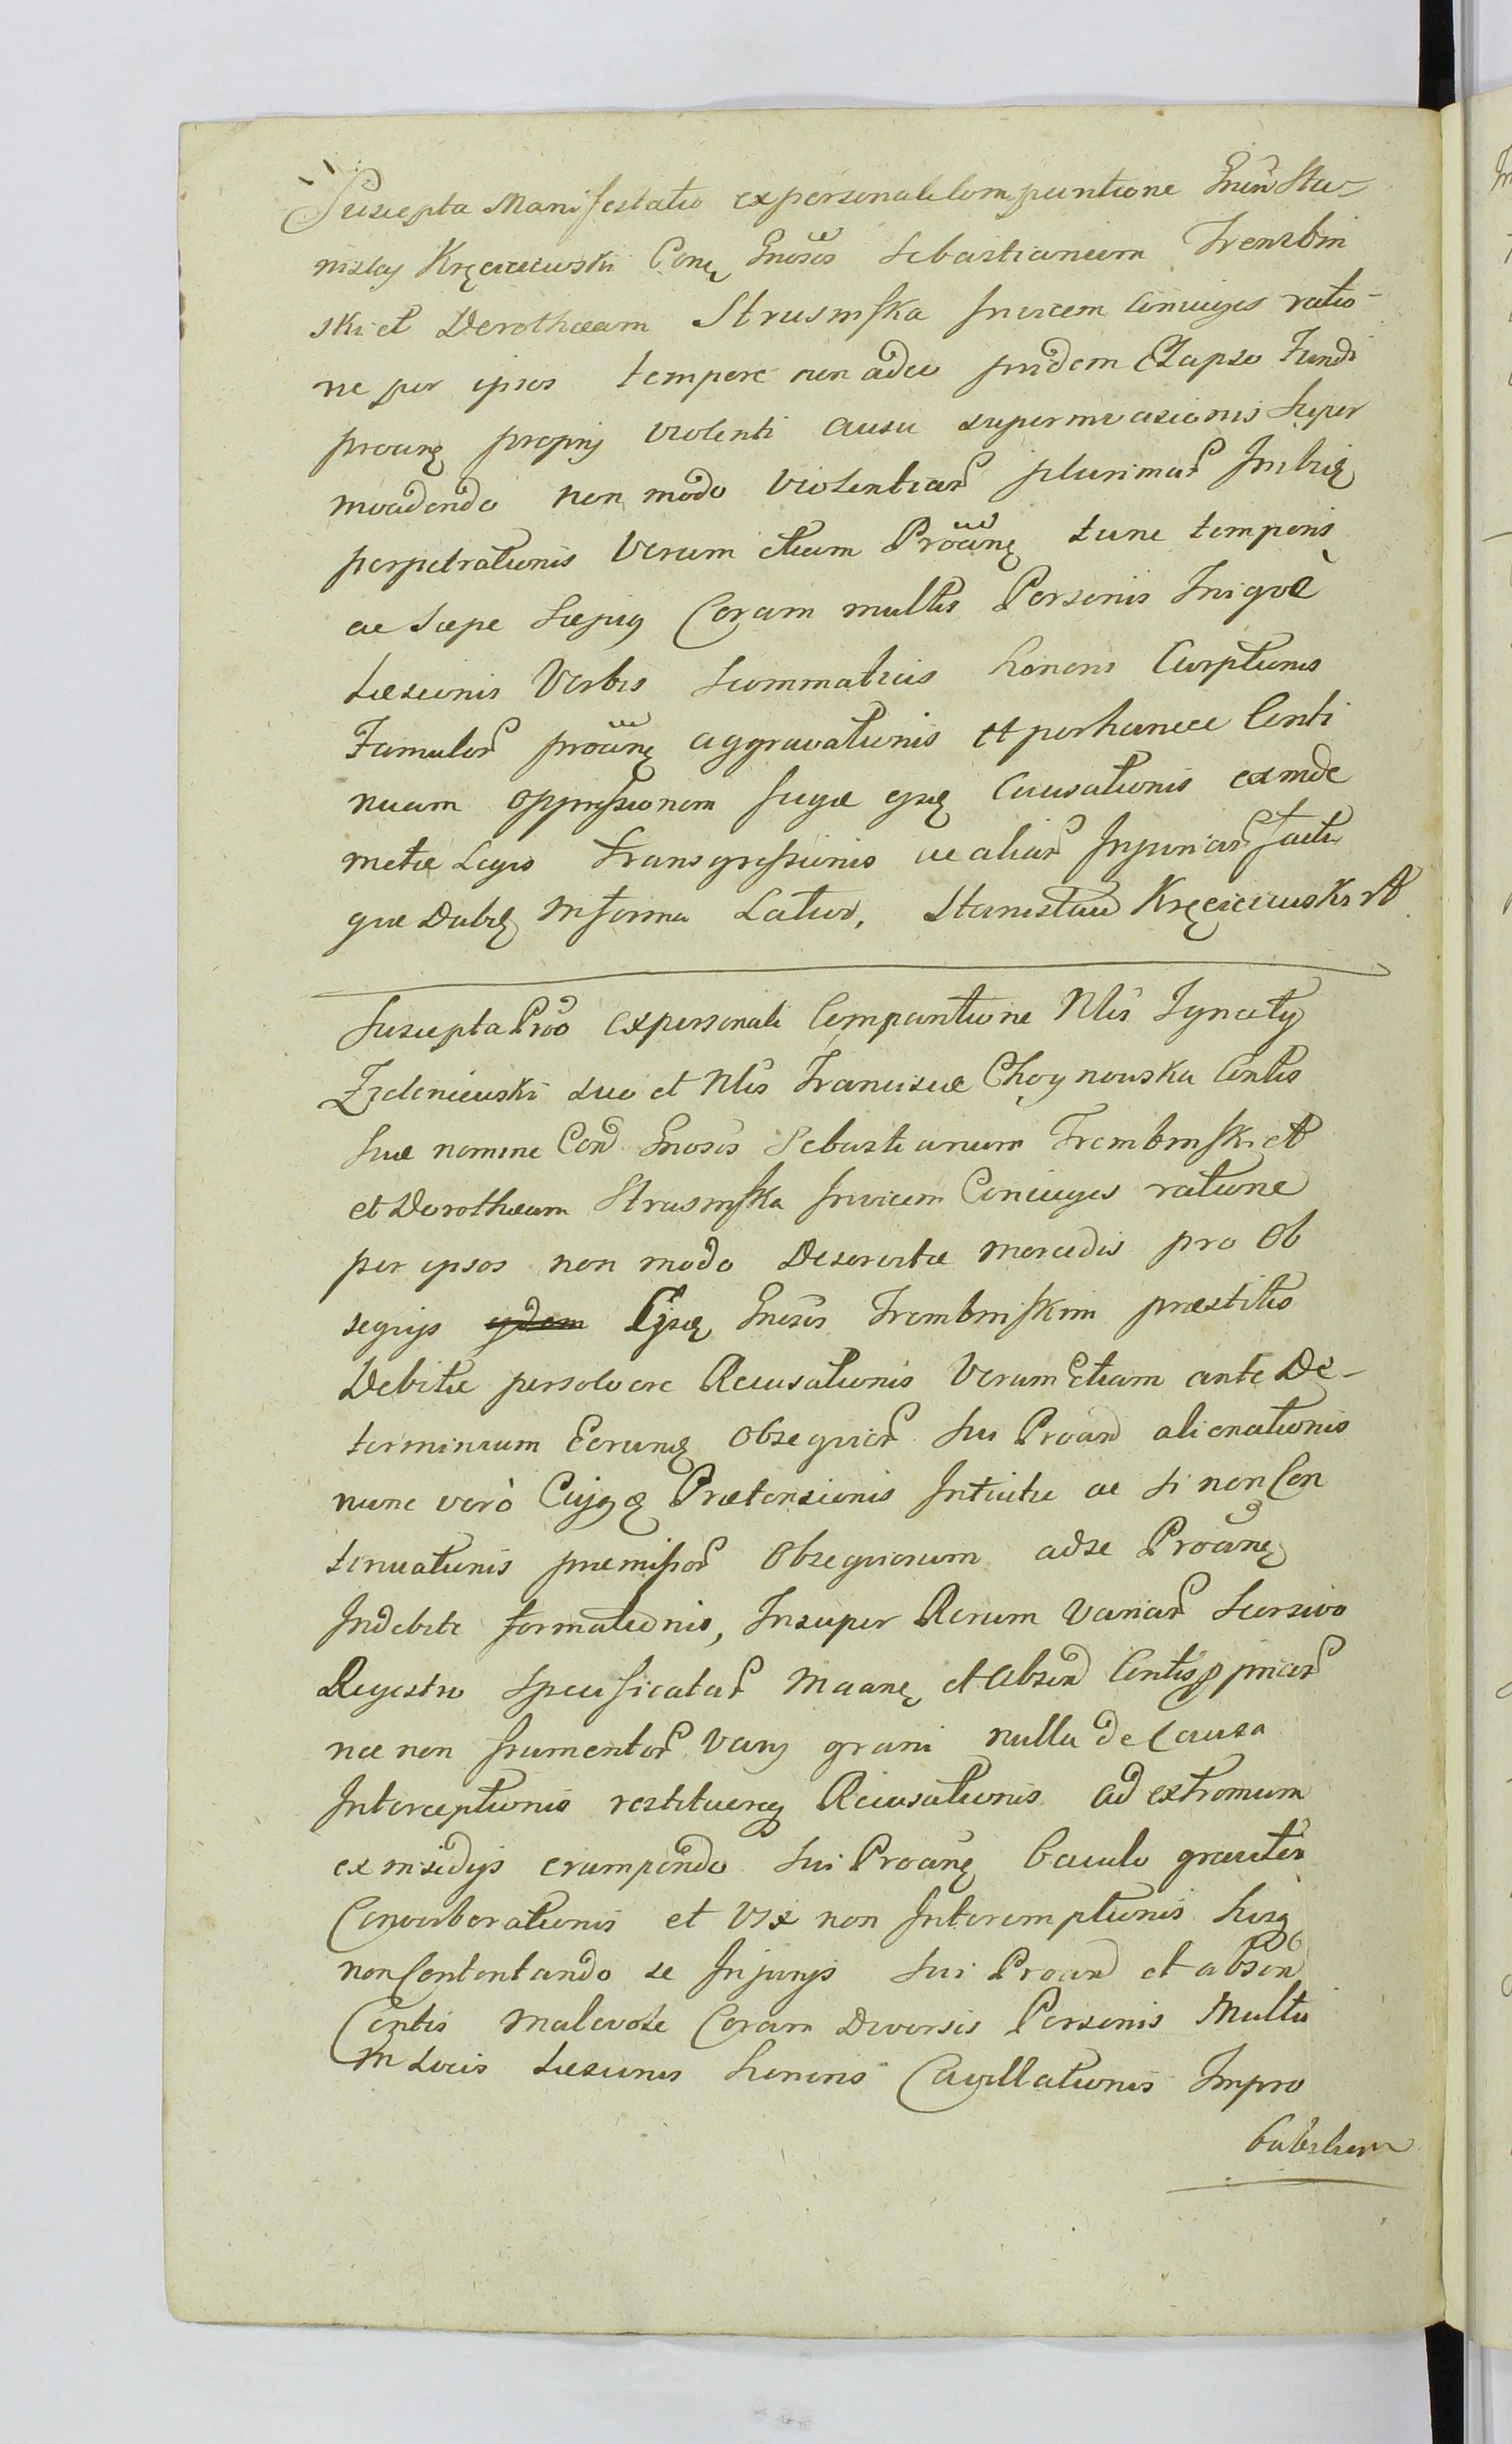 Suscepta Manifestatio ex personali Comparitione Gnsi Sta-
nislai Kręciewski Cone Gnosos Sebastianum Trembin
ski et Dorotheam Strusinska Invicem Coniuges ratio-
ne per ipsos tempore non adeo pridem Elapso Fundi
proane proprij violenti ausu superinvasionis super
invadendo non modo Violentiar plurimar Inibiq
perpetrationis Verum etiam Proane tunc temporis
ac saepe saepius Coram multis Personis Inique
Laesionis Verbis Summativis honoris Curptionis
Famulor proane aggravationis et per hancce Conti
nuam oppressionem fugae ejusq Causationis exinde
metae Legis transgressionis ac aliar Injuriar facti
que Dabilq in forma Latior, Stanisław Kręciewski
Suscepta Pro ex personali Comparitione Nlis Ignatij
Zdeniewski suo et Nlis Franciscae Choynowska Contis
suae nomine Con Gnosos Sebastianum Trembinski et
et Dorotheam Strusinska Invicem Coniuges ratione
per ipsos non modo Deservitae mercedis pro Ob
sequijs Ejusq Gnosis Trembinskim praestitis
Debitae persolvere Recusationis Verum Etiam ante De-
terminium Eorumq Obsequior sui Proan alienationis
nunc verò Cujusq Praetensionis Intuitu ac si non Con
tinuationis praemissor Obsequiorum ad se Proane
Indebite formationis, Insuper Rerum variar seorsivo
Regestro specificatar Maane et absen Contis ppriar
nec non frumentor varij grani nulla de Causa
Interceptionis restituereq Recusationis ad extremum
ex insidijs erumpendo sui Proane baculo graviter
Converberationis et vix non Interemptionis hisq
non Contentando se Injurijs sui Proan et absen
Contis malevole Coram Diversis Personis Multis
in Locis Laesionis honoris Cavillationis Impro
babilium